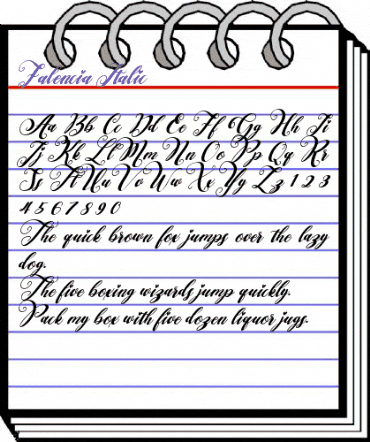 Falencia Italic
Aa Bb Cc Dd Ee Ff Gg Hh Ii
Jj Kk Ll Mm Nn Oo Pp Qq Rr
Ss Tt Uu Vv Ww Xx Yy Zz 1 2 3
4 5 6 7 8 9 0
The quick brown fox jumps over the lazy
dog.
The five boxing wizards jump quickly.
Pack my box with five dozen liquor jugs.